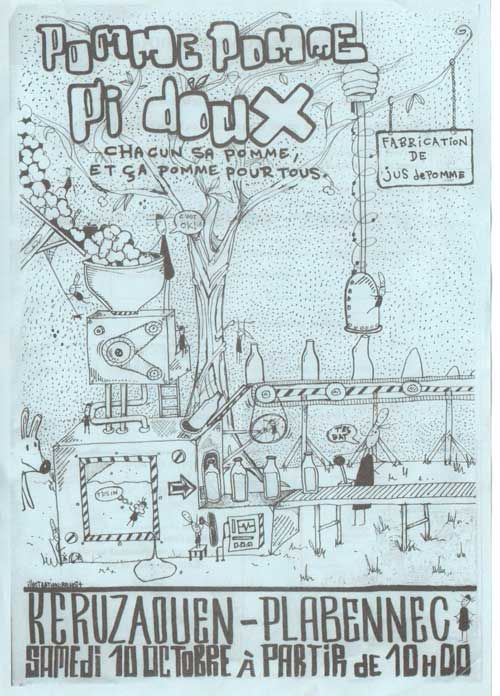 POMME POMME
Pi doux
CHACUN SA POMME,
ET ÇA POMME POUR TOUS.
FABRICATION
DE
JUS de POMME
C'EST
OK!
T'ES
BAT
KERUZAOUEN - PLABENNEC
SAMEDI 10 OCTOBRE À PARTIR de 10H00